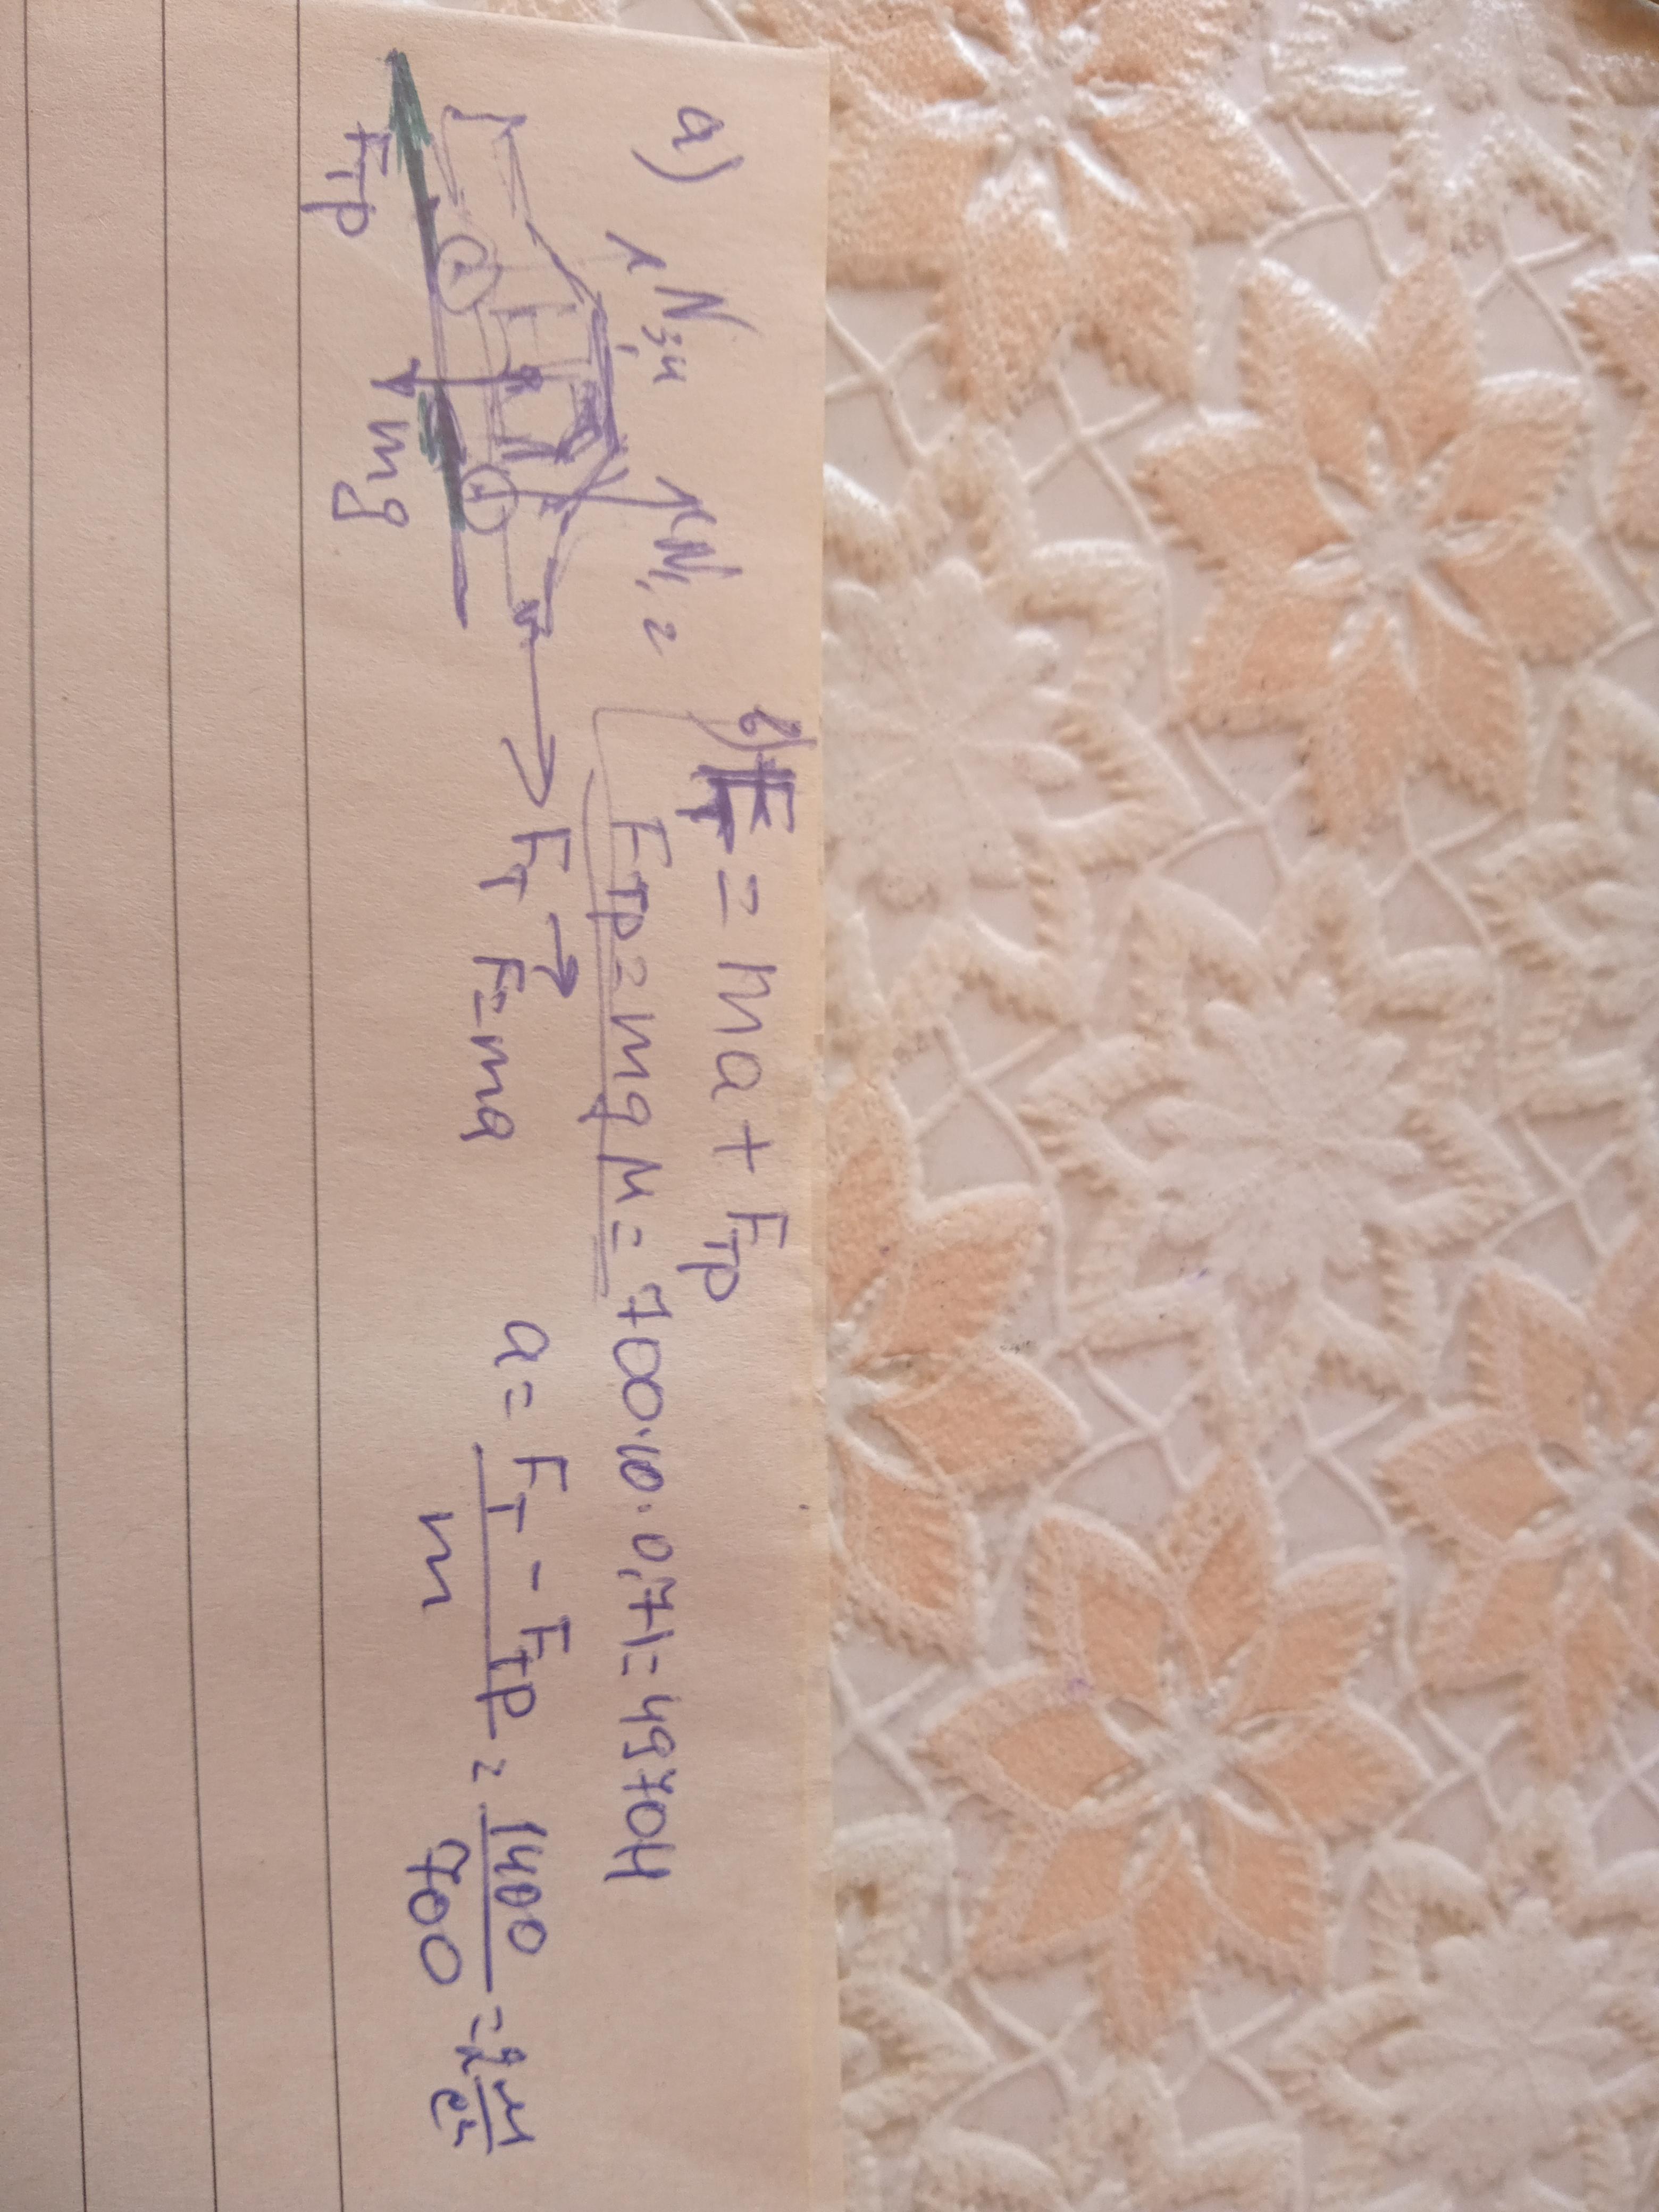 а)
N3,4
N1,2
Fтр
mg
Fт
F=ma
б) Fт = ma + Fтр
Fтр = mgμ = 700·10·0,71 = 4970Н
a = Fт - Fтр / m = 1400 / 700 = 2 м/с²